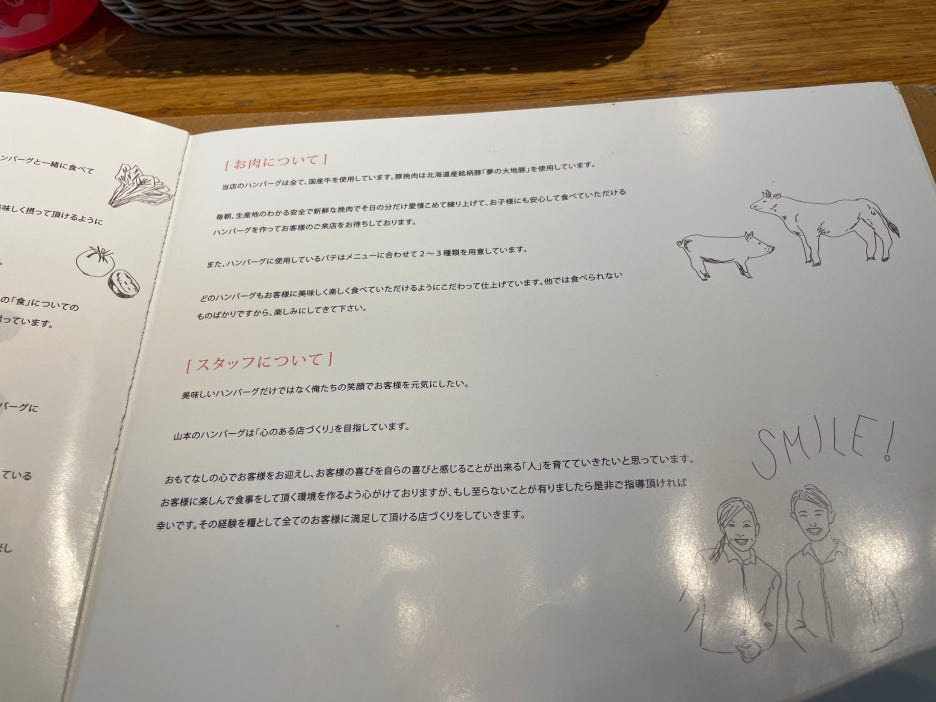 ハンバーグと一緒に食べて
美味しく摂って頂けるように
の「食」についての
思っています。
バーグに
ている
[ お肉について ]
当店のハンバーグは全て、国産牛を使用しています。豚挽肉は北海道産銘柄豚「夢の大地豚」を使用しています。
毎朝、生産地のわかる安全で新鮮な挽肉でその日の分だけ愛情こめて練り上げて、お子様にも安心して食べていただける
ハンバーグを作ってお客様のご来店をお待ちしております。
また、ハンバーグに使用しているパテはメニューに合わせて２～３種類を用意しています。
どのハンバーグもお客様に美味しく楽しく食べていただけるようにこだわって仕上げています。他では食べられない
ものばかりですから、楽しみにしてきて下さい。
[ スタッフについて ]
美味しいハンバーグだけではなく俺たちの笑顔でお客様を元気にしたい。
山本のハンバーグは「心のある店づくり」を目指しています。
おもてなしの心でお客様をお迎えし、お客様の喜びを自らの喜びと感じることが出来る「人」を育てていきたいと思っています。
お客様に楽しんで食事をして頂く環境を作るよう心がけておりますが、もし至らないことが有りましたら是非ご指導頂ければ
幸いです。その経験を糧として全てのお客様に満足して頂ける店づくりをしていきます。
SMILE!